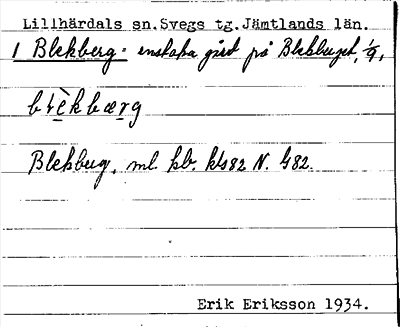 Lillhärdals sn. Svegs tg. Jämtlands län.
1 Blekberg - enstaka gård på Blekberget, 1/9,
blèkbærg
Blekberg, ml. kb. kls82 N. 482.
Erik Eriksson 1934.